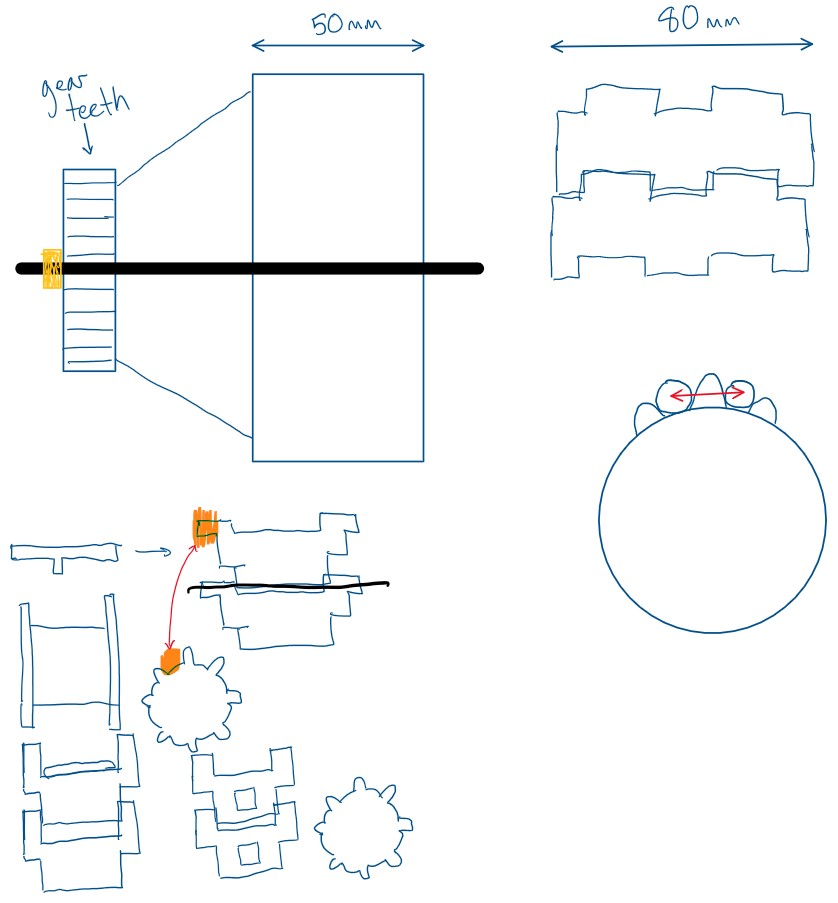 50mm
80mm
gear
teeth